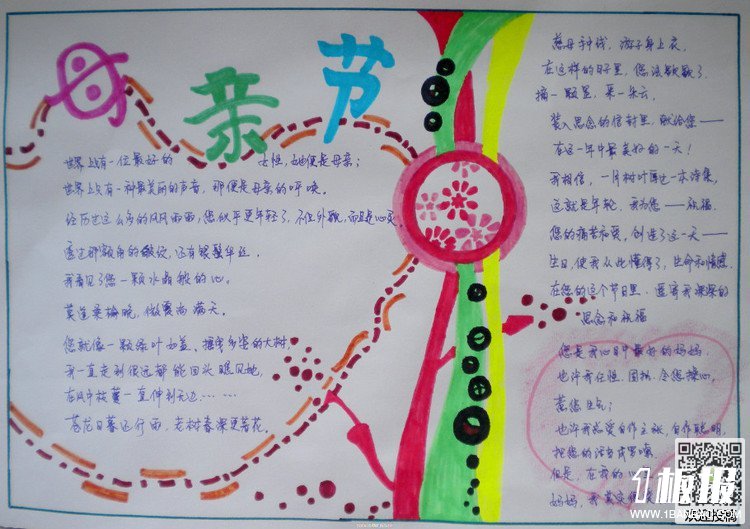 母亲节
世界上有一位最好的 女性,她便是母亲;
世界上有一种最美丽的声音,那便是母亲的呼唤。
经历过这么多的风风雨雨,您似乎更年轻了,不但外貌,而且是心灵。
透过那额角的皱纹,还有银鬓华丝。
我看见了您一颗水晶般的心。
莫道桑榆晚,微霞尚满天。
您就像一颗绿叶如盖、
的大树,
我一直走到很远都能回头瞧见她,
在风中枝蔓一直伸到天边……
落花日暮还行雨,老树春深更著花。
慈母手中线,游子身上衣,
在这样的日子里,您该歇歇了,
摘一颗星,采一朵云,
装入思念的信封里,献给您——
在这一年中最美好的一天!
我相信,一月树叶
一本诗集,
这就是年轮,我为您——祝福。
您的痛苦和爱,创造了这一天——
生日,使我从此懂得了,生命和情感。
在您的这个节日里,遥寄我深深的
思念和祝福
您是我心目中最好的妈妈,
也许我任性、固执、令您操心,
惹您生气;
也许我总爱自作主张,自作聪明,
把您的话当成啰嗦
但是,在我的心
妈妈,我其实很
1板报
WWW.1BANBAO.COM